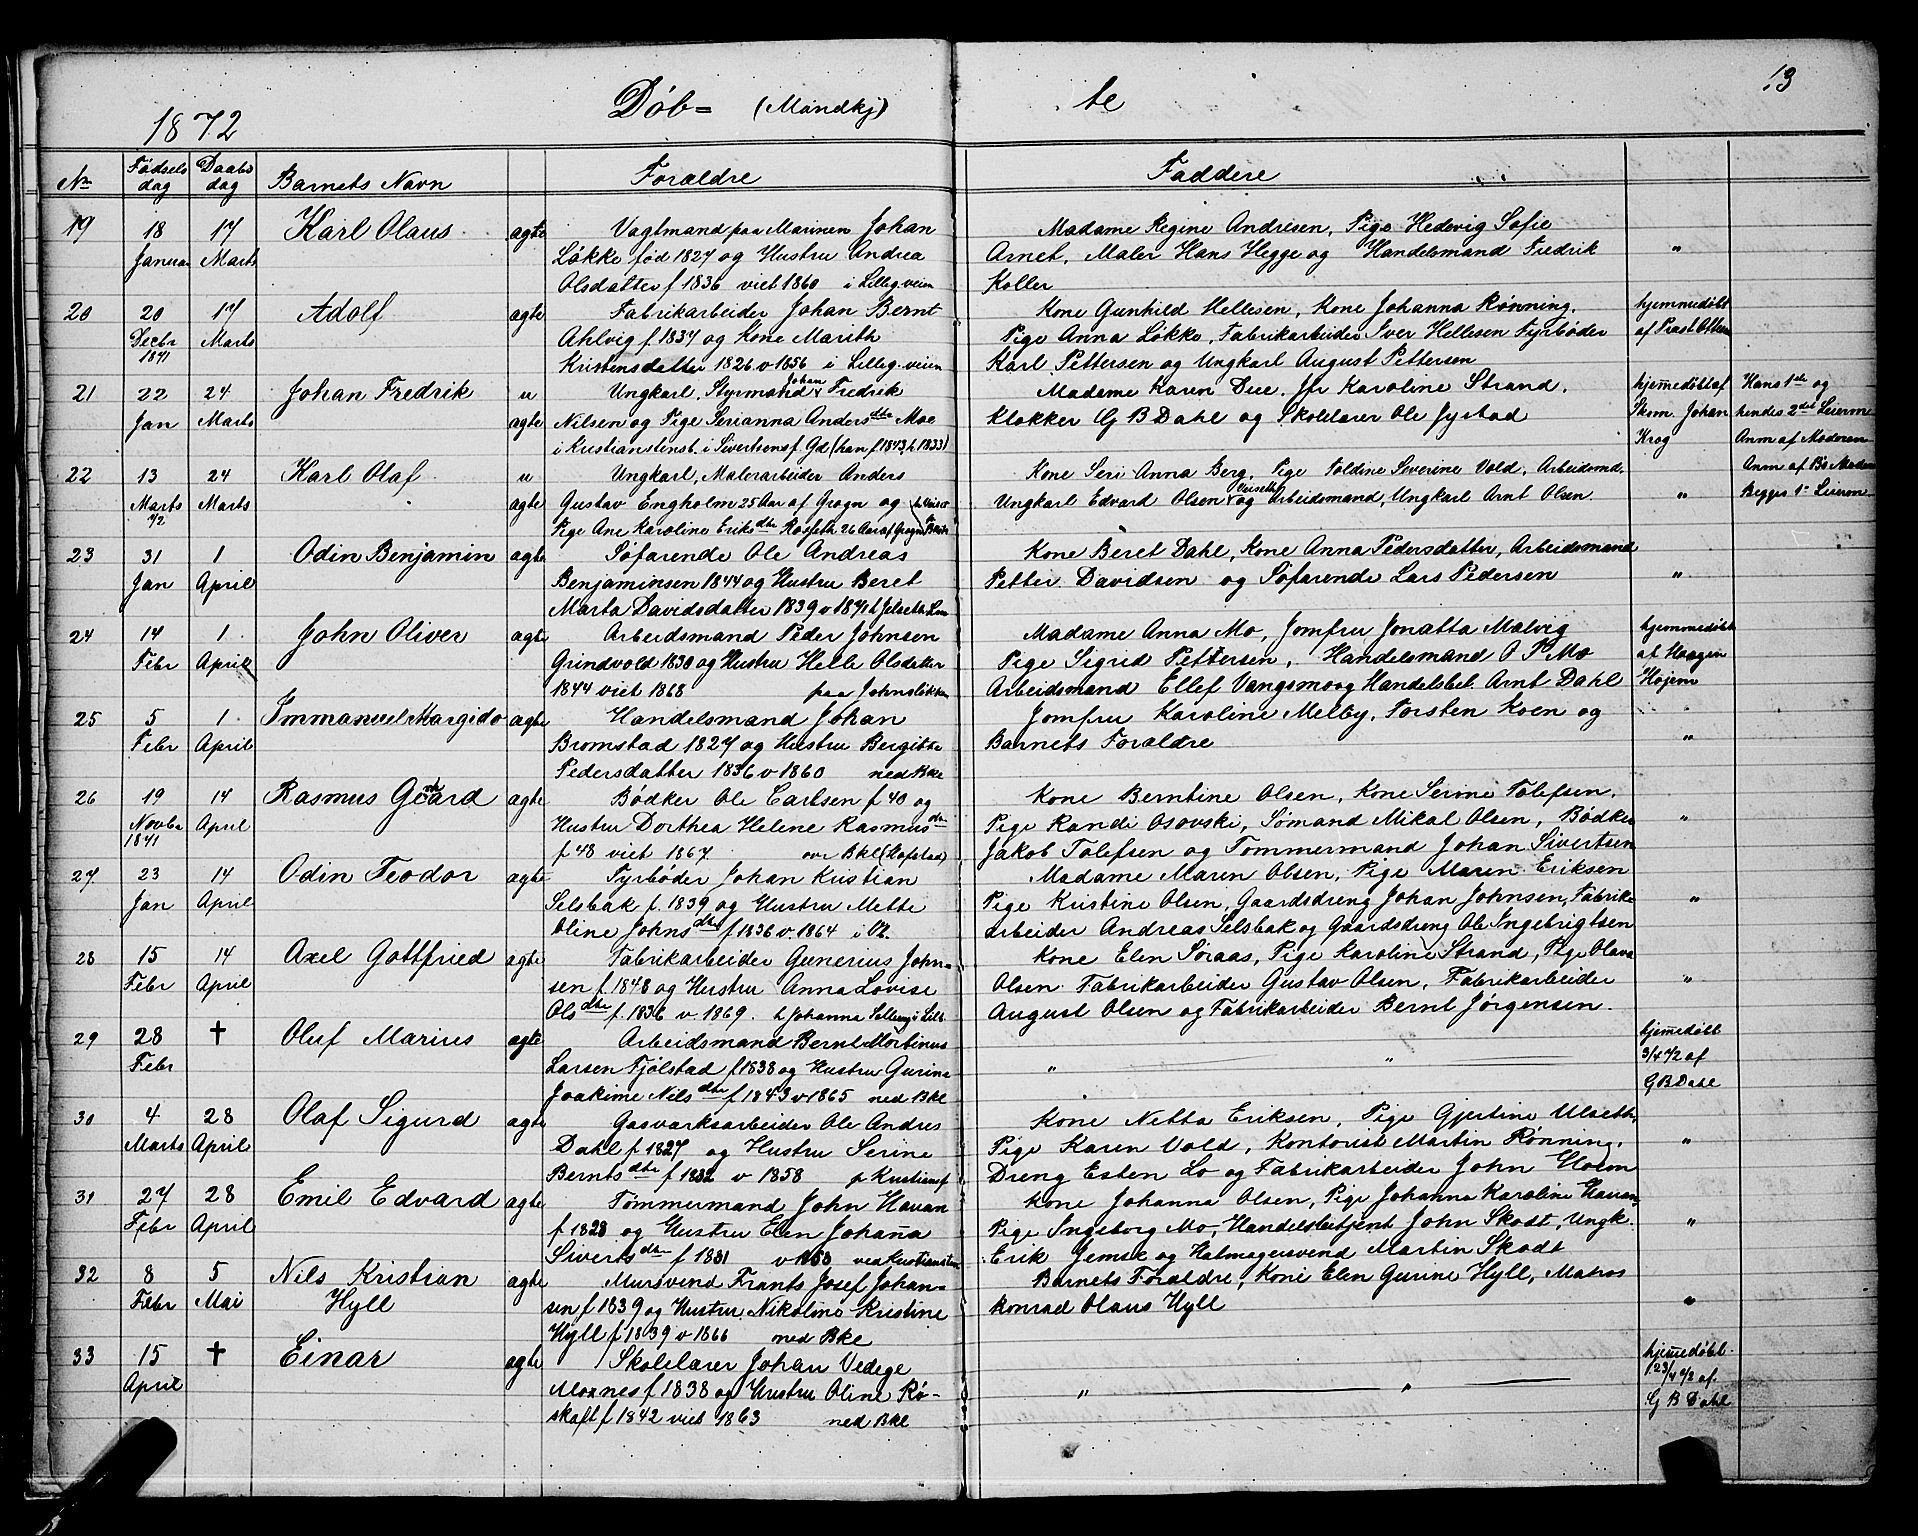 13
Døb= (Mandkj) te
1872
No Fødsels Daabs Barnets Navn Forældre Faddere
dag dag
19 18 17 Karl Olaus ægte Vagtmand paa Marinen Johan Madame Regine Andresen, Pige Hedevig Sofie
Januar Marts Løkke fød 1827 og Hustru Andrea Arnet, Maler Hans Hegge og Handelsmand Fredrik "
Olsdatter f 1836 viet 1860 i Lilleg.veien Koller
20 20 17 Adolf ægte Fabrikarbeider Johan Bernt Kone Gunhild Hellesen, Kone Johanna Rønning, hjemmedøbt
Decbr Marts Ahlvig f 1837 og Kone Marith Pige Anna Løkke, Fabrikarbeider Iver Hellesen Fyrbøder af Præst
1871 Kristensdatter 1826 v 1856 i Lilleg.veien Karl Pettersen og Ungkarl August Pettersen
21 22 24 Johan Fredrik u Ungkarl, Styrmand Johan Fredrik Madame Karen Due, Jfr Karoline Strand, hjemedøbt af Hans 1ste og
Jan Marts ægte Nilsen og Pige Serianna Andersdtr Moe Klokker G B Dahl og Skolelærer Ole Jystad Skom. Johan hendes 2det Leierm
i Kristianstenst. i Sivertsens Gd (han f 1843, h 1833) Krog Anm af Moderen
22 13 24 Karl Olaf u Ungkarl, Malerarbeider Anders Kone Seri Anna Berg, Pige Toldine Severine Vold, Arbeidsmd. Anm af
Marts Marts ægte Gustav Engholm 25 Aar af Grogn og Ungkarl Edvard Olsen og Arbeidsmand, Ungkarl Arnt Olsen " Begges 1ste Leierm
72 Pige Ane Karoline Eriksdtr Rosseth 26 Aar af Grogn
23 31 1 Odin Benjamin ægte Søfarende Ole Andreas Kone Beret Dahl, Kone Anna Pedersdatter, Arbeidsmand
Jan April Benjaminsen 1844 og Hustru Beret Petter Davidsen og Søfarende Lars Pedersen "
Marta Davidsdatter 1839 v 1871
24 14 1 John Oliver ægte Arbeidsmand Peder Johnsen Madame Anna Mo, Jomfru Jonatta Malvig hjemmedøbt
Febr April Grindvold 1830 og Hustru Helle Olsdatter Pige Sigrid Pettersen, Handelsmand O P Mo af Haagen
1844 viet 1868 paa Johnsløkken Arbeidsmand Ellef Vangsmo og Handelsbet. Arnt Dahl Hojem
25 5 1 Immanuel Margido ægte Handelsmand Johan Jomfru Karoline Melby, Torsten Koen og
Febr April Bromstad 1827 og Hustru Bergitte Barnets Forældre "
Pedersdatter 1836 v 1860 ned Bkl
26 19 14 Rasmus ægte Bødker Ole Carlsen f 40 og Kone Berntine Olsen, Kone Serine Tolefsen,
Novbr April Hustru Dorthea Helene Rasmusdtr Pige Randi Osovski, Sømand Mikal Olsen, Bødker "
1871 f 48 viet 1867 ovr Bkl (Hofstad) Jakob Tolefsen og Tømmermand Johan Sivertsen
27 23 14 Odin Teodor ægte Fyrbøder Johan Kristian Madame Maren Olsen, Pige Maren Eriksen
Jan April Selsbak f. 1839 og Hustru Mette Pige Kristine Olsen, Gaardsdreng Johan Johnsen, Fabrik- "
Oline Johnsdtr f 1836 v. 1864 i arbeider Andreas Selsbak og Gaardsdreng Ole Ingebrigtsen
28 15 14 Axel Gottfried ægte Fabrikarbeider Gunerius John- Kone Elen Søraas, Pige Karoline Strand, Pige Olava
Febr April sen f. 1848 og Hustru Anna Lovise Olsen Fabrikarbeider Gustav Olsen, Fabrikarbeider "
Olsdtr f. 1836 v. 1869. August Olsen og Fabrikarbeider Bernt Jørgensen.
29 28 † Oluf Marius ægte Arbeidsmand Bernt Mortinus hjemedøbt
Febr Larsen Fjølstad f 1838 og Hustru Gurina " " 3/4 72 af
Joakime Nilsdtr f 1843 v 1865 ned Bkl G B Dahl
30 4 28 Olaf Sigurd ægte Gasværksarbeider Ole Andres Kone Netta Eriksen, Pige Gjertine Ulseth,
Marts April Dahl f 1827 og Hustru Serine Pige Karen Vold, Kontorist Martin Rønning, "
Berntsdtr f 1832 v 1858 Dreng Esten Lo og Fabrikarbeider John Holm
31 27 28 Emil Edvard ægte Tømmermand John Havan Kone Johanna Olsen, Pige Johanna Karoline Havan,
Febr April f 1828 og Hustru Elen Johanna Pige Ingeborg Mo, Handelsbetjent John Skodt, Ungk. "
Sivertsdtr f 1831 v 1853 ved Kristiansten Erik Jemsk og Hatmagersvend Martin Skodt
32 8 5 Nils Kristian ægte Mursvend Frants Josef Johan- Barnets Forældre, Kone Elen Gurine Hyll, Matros
Febr Mai Hyll sen f 1839 og Hustru Nikoline Kristine Konrad Olaus Hyll "
Hyll f 1839 v 1866 ned Bkl
33 15 † Einar ægte Skolelærer Johan Vedege hjemedøbt
April Moxnes f 1838 og Hustru Oline Rø- " " 23/4 72 af
skaft f 1842 viet 1863 ned Bkl G B Dahl